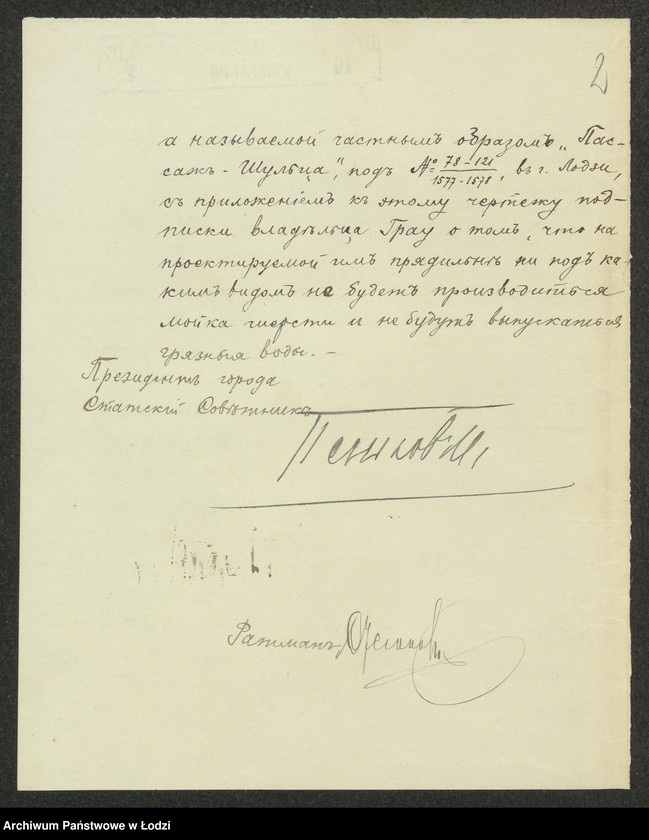 2
а называемой частнымъ образомъ „Пас-
сажъ-Шульца", подъ №
78-121
1577-1578
, въ г. Лодзи,
съ приложеніемъ къ этому чертежу под-
писки владѣльца Грау о томъ, что на
проектируемой имъ прядильнѣ ни подъ ка-
кимъ видомъ не будетъ производиться
мойка шерсти и не будутъ выпускаться
грязныя воды. —
Президентъ города
Статскій Совѣтникъ
Ратманъ
Archiwum Państwowe w Łodzi